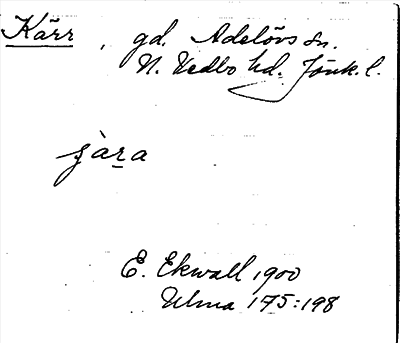 Kärr, gd. Adelövs sn.
N. Vedbo hd. Jönk. l.
E. Ekwall 1900
Ulma 175:198